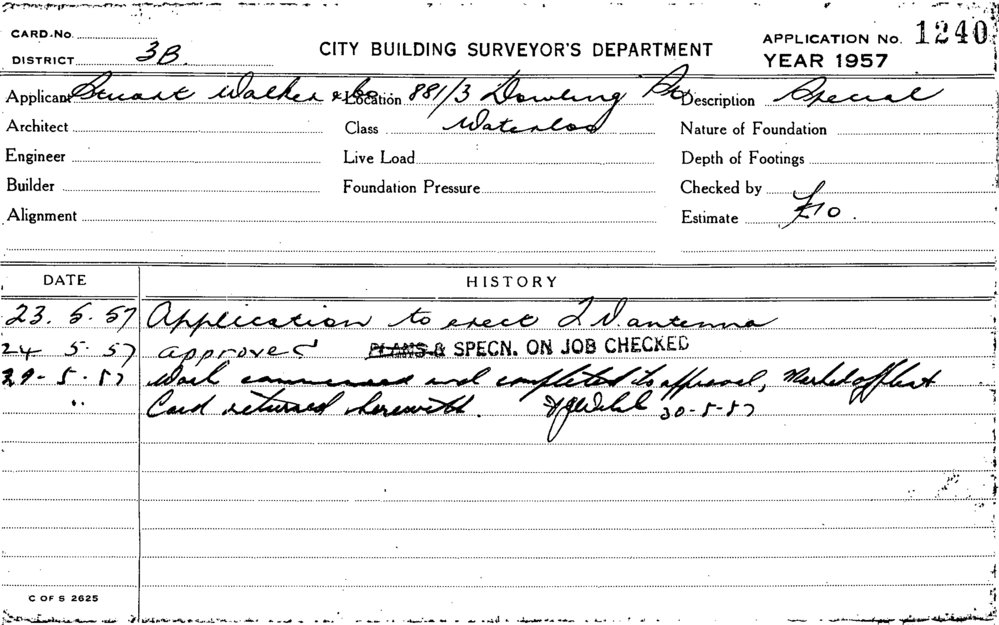 CARD No.
DISTRICT 3B.
CITY BUILDING SURVEYOR'S DEPARTMENT
APPLICATION No. 1240
YEAR 1957
Applicant Stuart Walker & Co Location 881/3 Dowling St Description Special
Architect Class Waterloo Nature of Foundation
Engineer Live Load Depth of Footings
Builder Foundation Pressure Checked by
Alignment Estimate £10.
DATE HISTORY
23. 5. 57 Application to erect T.V. antenna
24 5. 57 approved PLANS & SPECN. ON JOB CHECKED
29-5.57 Work commenced and completed to approval, Marked off
" Card returned herewith. 30-5-57
C OF S 2625